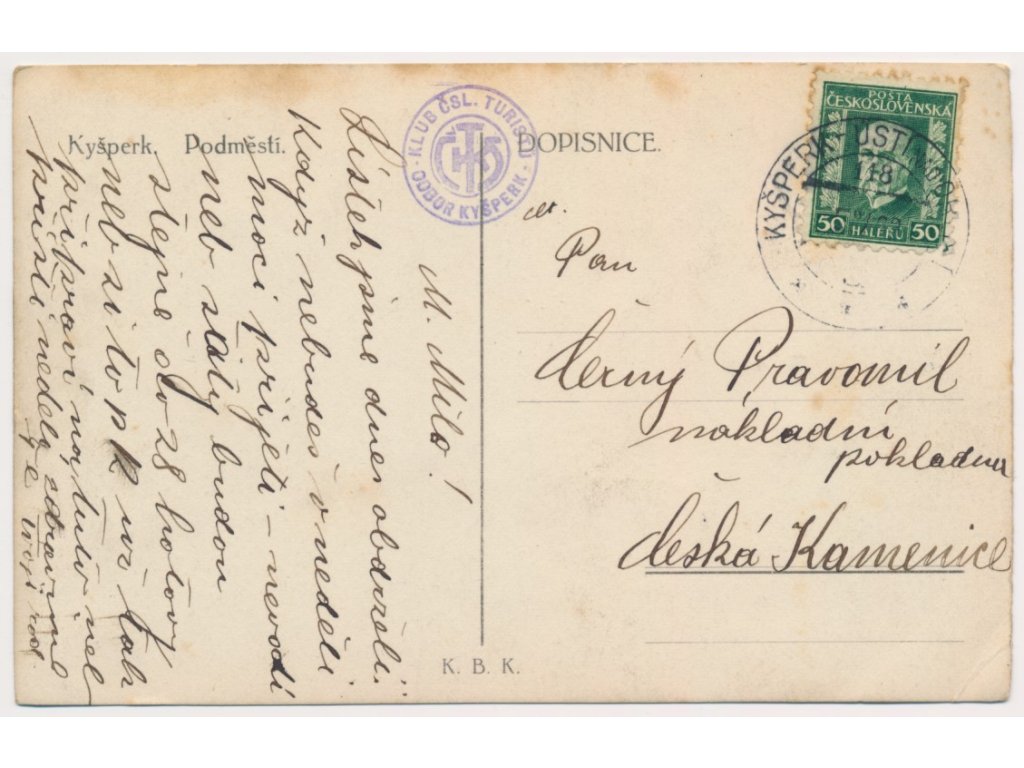 Kyšperk. Podměstí.
KLUB ČSL. TURISTŮ
KČST
ODBOR KYŠPERK
DOPISNICE.
POŠTA
ČESKOSLOVENSKÁ
50 HALÉŘŮ 50
KYŠPERK
118
M. Milo!
Lístek jsme dnes obdrželi.
Když nebudeš v neděli
moci přijeti – nevadí
neb šaty budou
stejně do 28 hotovy
neb si to pk už tak
při
příští neděli zdraví
Pan
Černý Pravomil
nákladní
pokladna
Česká Kamenice
K. B. K.